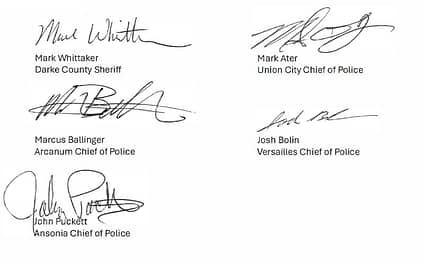 Mark Whitt
Mark Whittaker
Darke County Sheriff
Mark Ater
Union City Chief of Police
Marcus Ballinger
Arcanum Chief of Police
Josh Bolin
Versailles Chief of Police
John Puckett
Ansonia Chief of Police